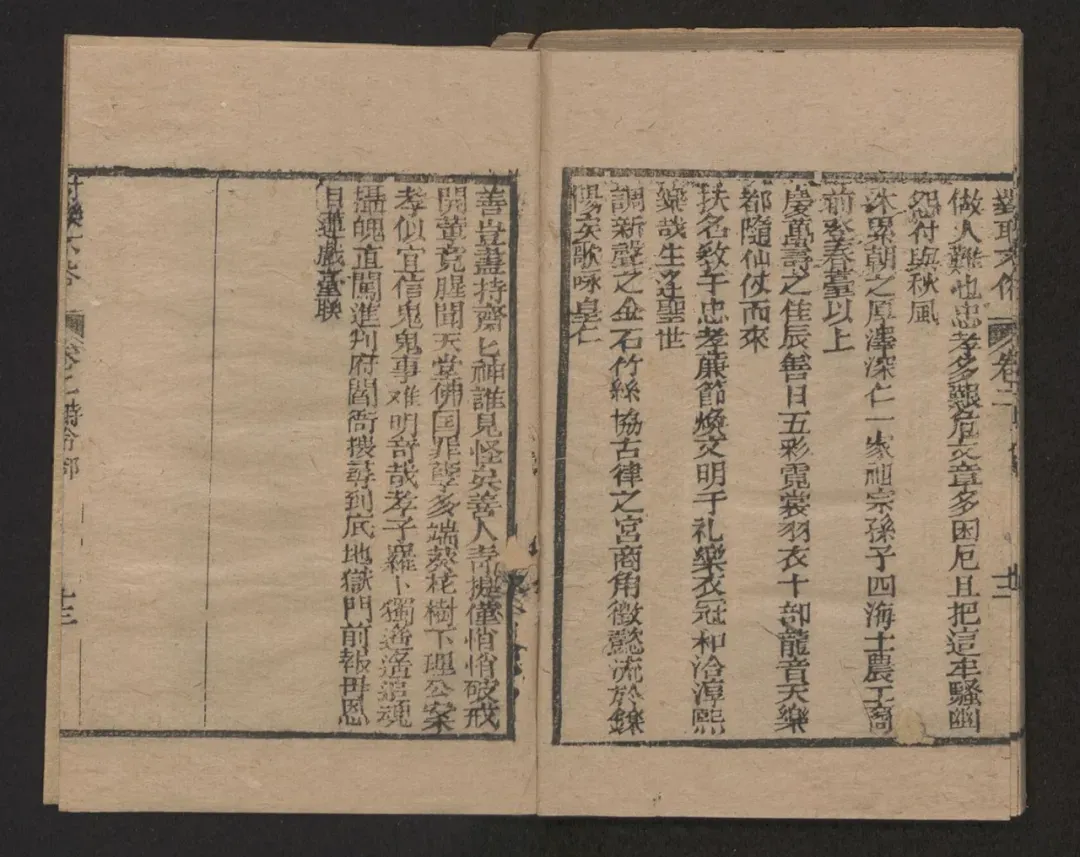 做人難也忠孝多艱危文章多困厄且把這牢騷幽
怨付與秋風
沐累朝之厚澤深仁一家祖宗孫子四海士農工商
前登春臺以上
慶萬壽之佳辰令日五彩霓裳羽衣十部龍音天樂
都隨仙仗而來
扶名教于忠孝廉節煥文明于礼樂衣冠和洽淳熙
樂哉生逢聖世
調新聲之金石竹絲協古律之宮商角徵懿流於鑠
陽矣歌咏皇仁
善豈盡持齋匕神誰見怪矣善人 僅悄悄破戒
開葷竟腥聞天堂佛国罪孽多端葵花樹下理公案
孝似宜信鬼鬼事难明奇哉孝子羅卜獨遙遙追魂
攝魄直闖進判府閻衙搜尋到底地獄門前報母恩
目蓮戲臺聯
卷二 時令部